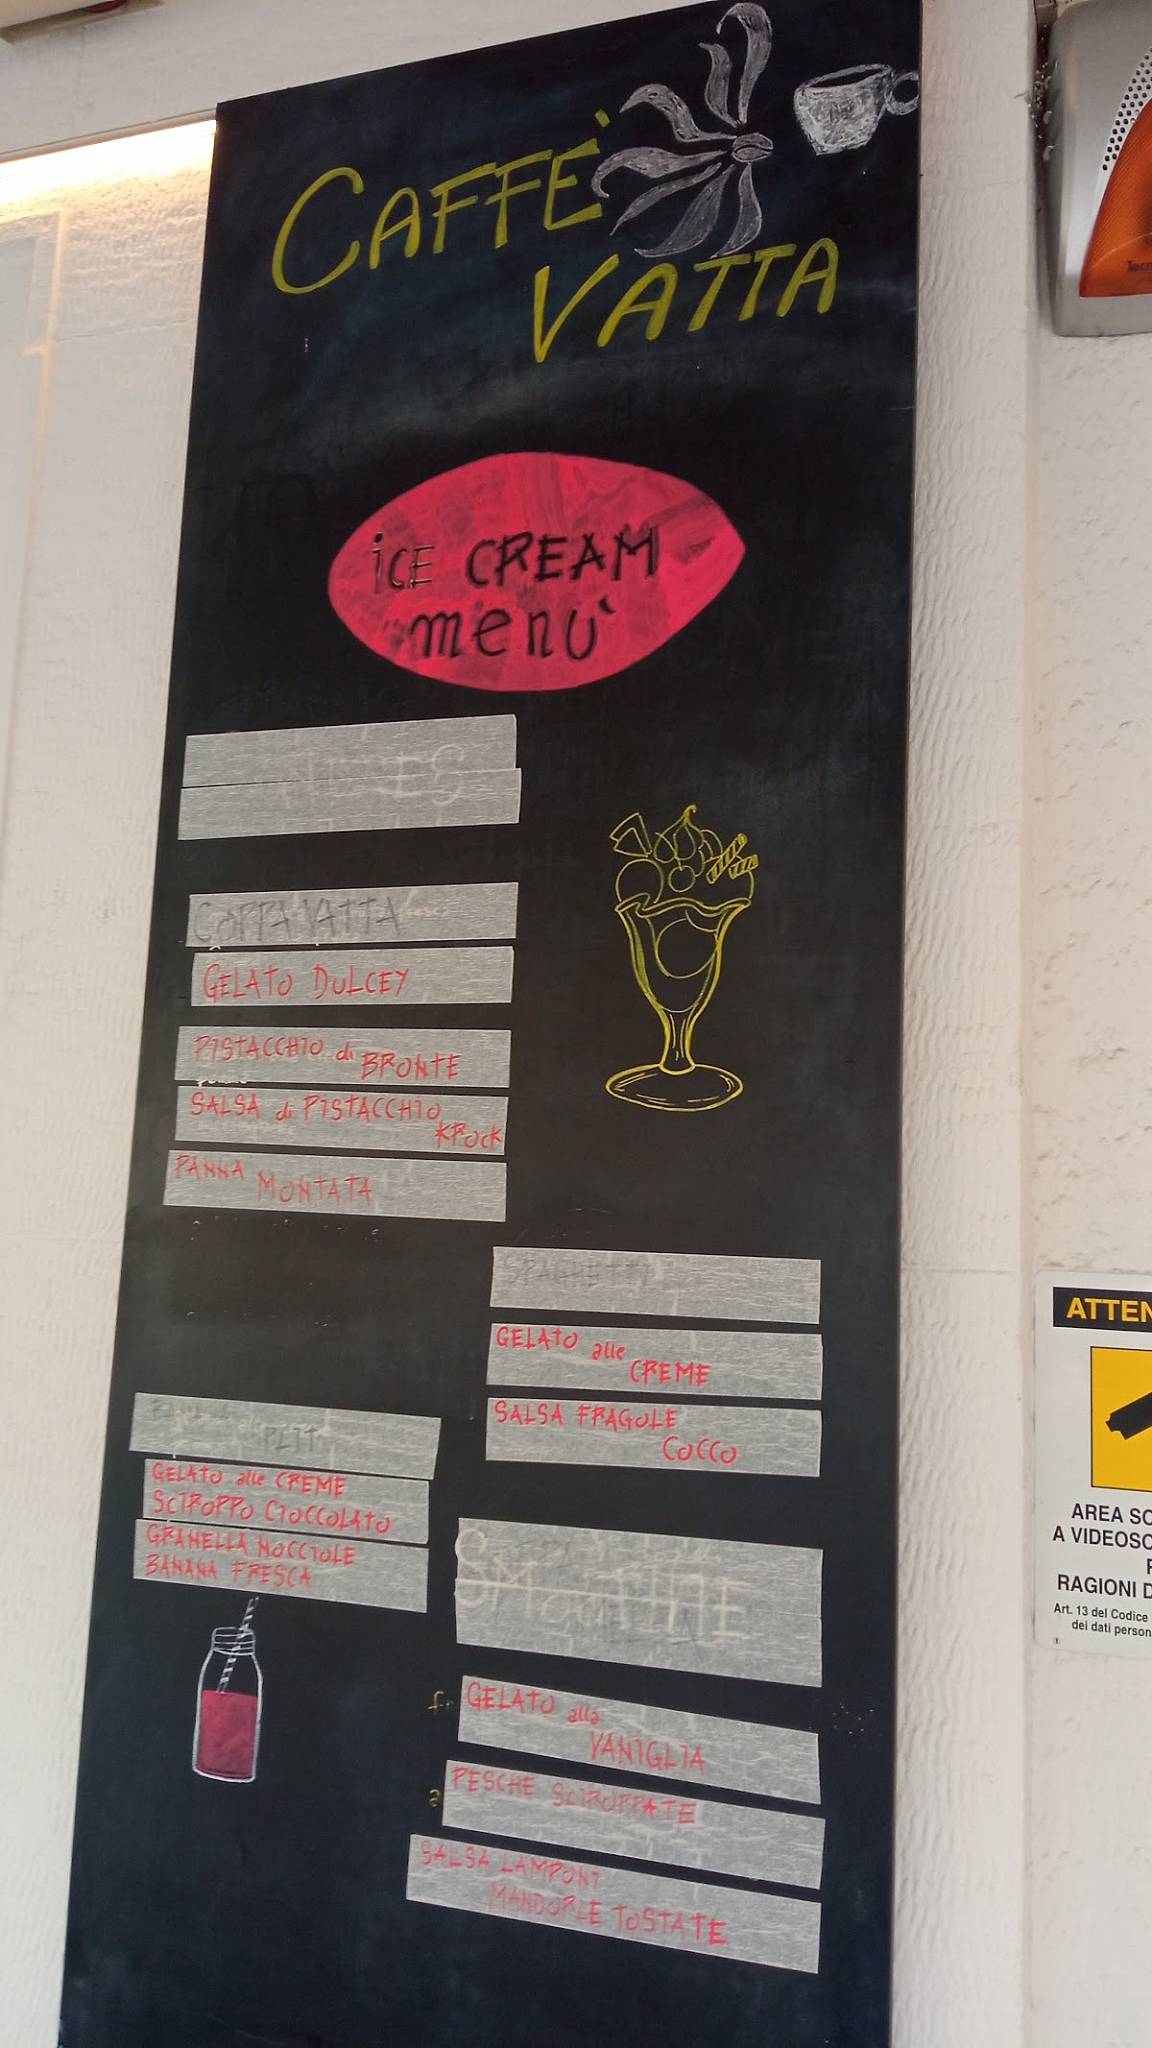 CAFFÈ
VATTA
iCE CREAM
menù
COPPA VATTA
GELATO DULCEY
PISTACCHIO di BRONTE
SALSA di PISTACCHIO KROCK
PANNA MONTATA
SPAGHETTI
GELATO alle CREME
SALSA FRAGOLE COCCO
SPLIT
GELATO alle CREME
SCIROPPO CIOCCOLATO
GRANELLA NOCCIOLE
BANANA FRESCA
SMOOTHIE
GELATO alla VANIGLIA
PESCHE SCIROPPATE
SALSA LAMPONI
MANDORLE TOSTATE
Tecn
ATTEN
AREA SO
A VIDEOSO
RAGIONI D
Art. 13 del Codice
dei dati person